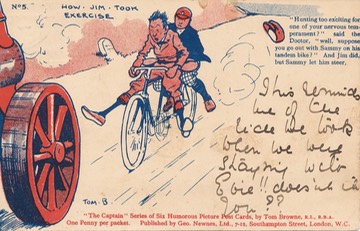 Nº5.
HOW · JIM · TOOK
EXERCISE
"Hunting too exciting for
one of your nervous tem-
perament?" said the
Doctor, "well, suppose
you go out with Sammy on his
tandem bike?" And Jim did,
but Sammy let him steer,
This reminds
me of the
we took
when we were
Staying with
Evie!! doesn't it
you??
TOM · B.
"The Captain" Series of Six Humorous Picture Post Cards, by Tom Browne, R.I., R.B.A.
One Penny per packet. Published by Geo. Newnes, Ltd., 7-12, Southampton Street, London, W.C.